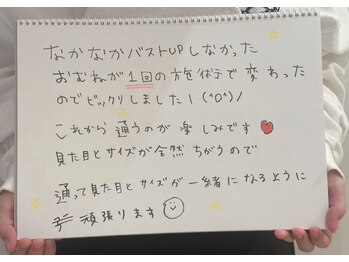 なかなかバストUPしなかった
おむねが1回の施術で変わった
のでビックリしました！(^O^)/
これから通うのが楽しみです
見た目とサイズが全然ちがうので
通って見た目とサイズが一緒になるように
頑張ります